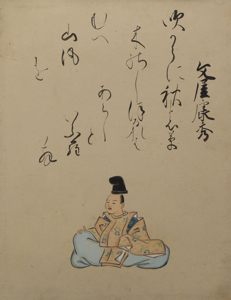 文屋康秀
吹からに秋の草
木のしほるれは
むへ
山風
を
あらしと
いふ羅
む